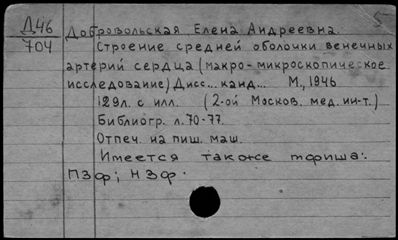 5
Д46
704
Добровольская Елена Андреевна
Строение средней оболочки венечных
артерий сердца (макро-микроскопическое
исследование) Дисс... канд... М., 1946
129л. с илл. (2-ой Москов. мед. ин-т.)
Библиогр. л. 70-77.
Отпеч. на пиш. маш.
Имеется также тфиша:
ПЗФ; НЗФ.